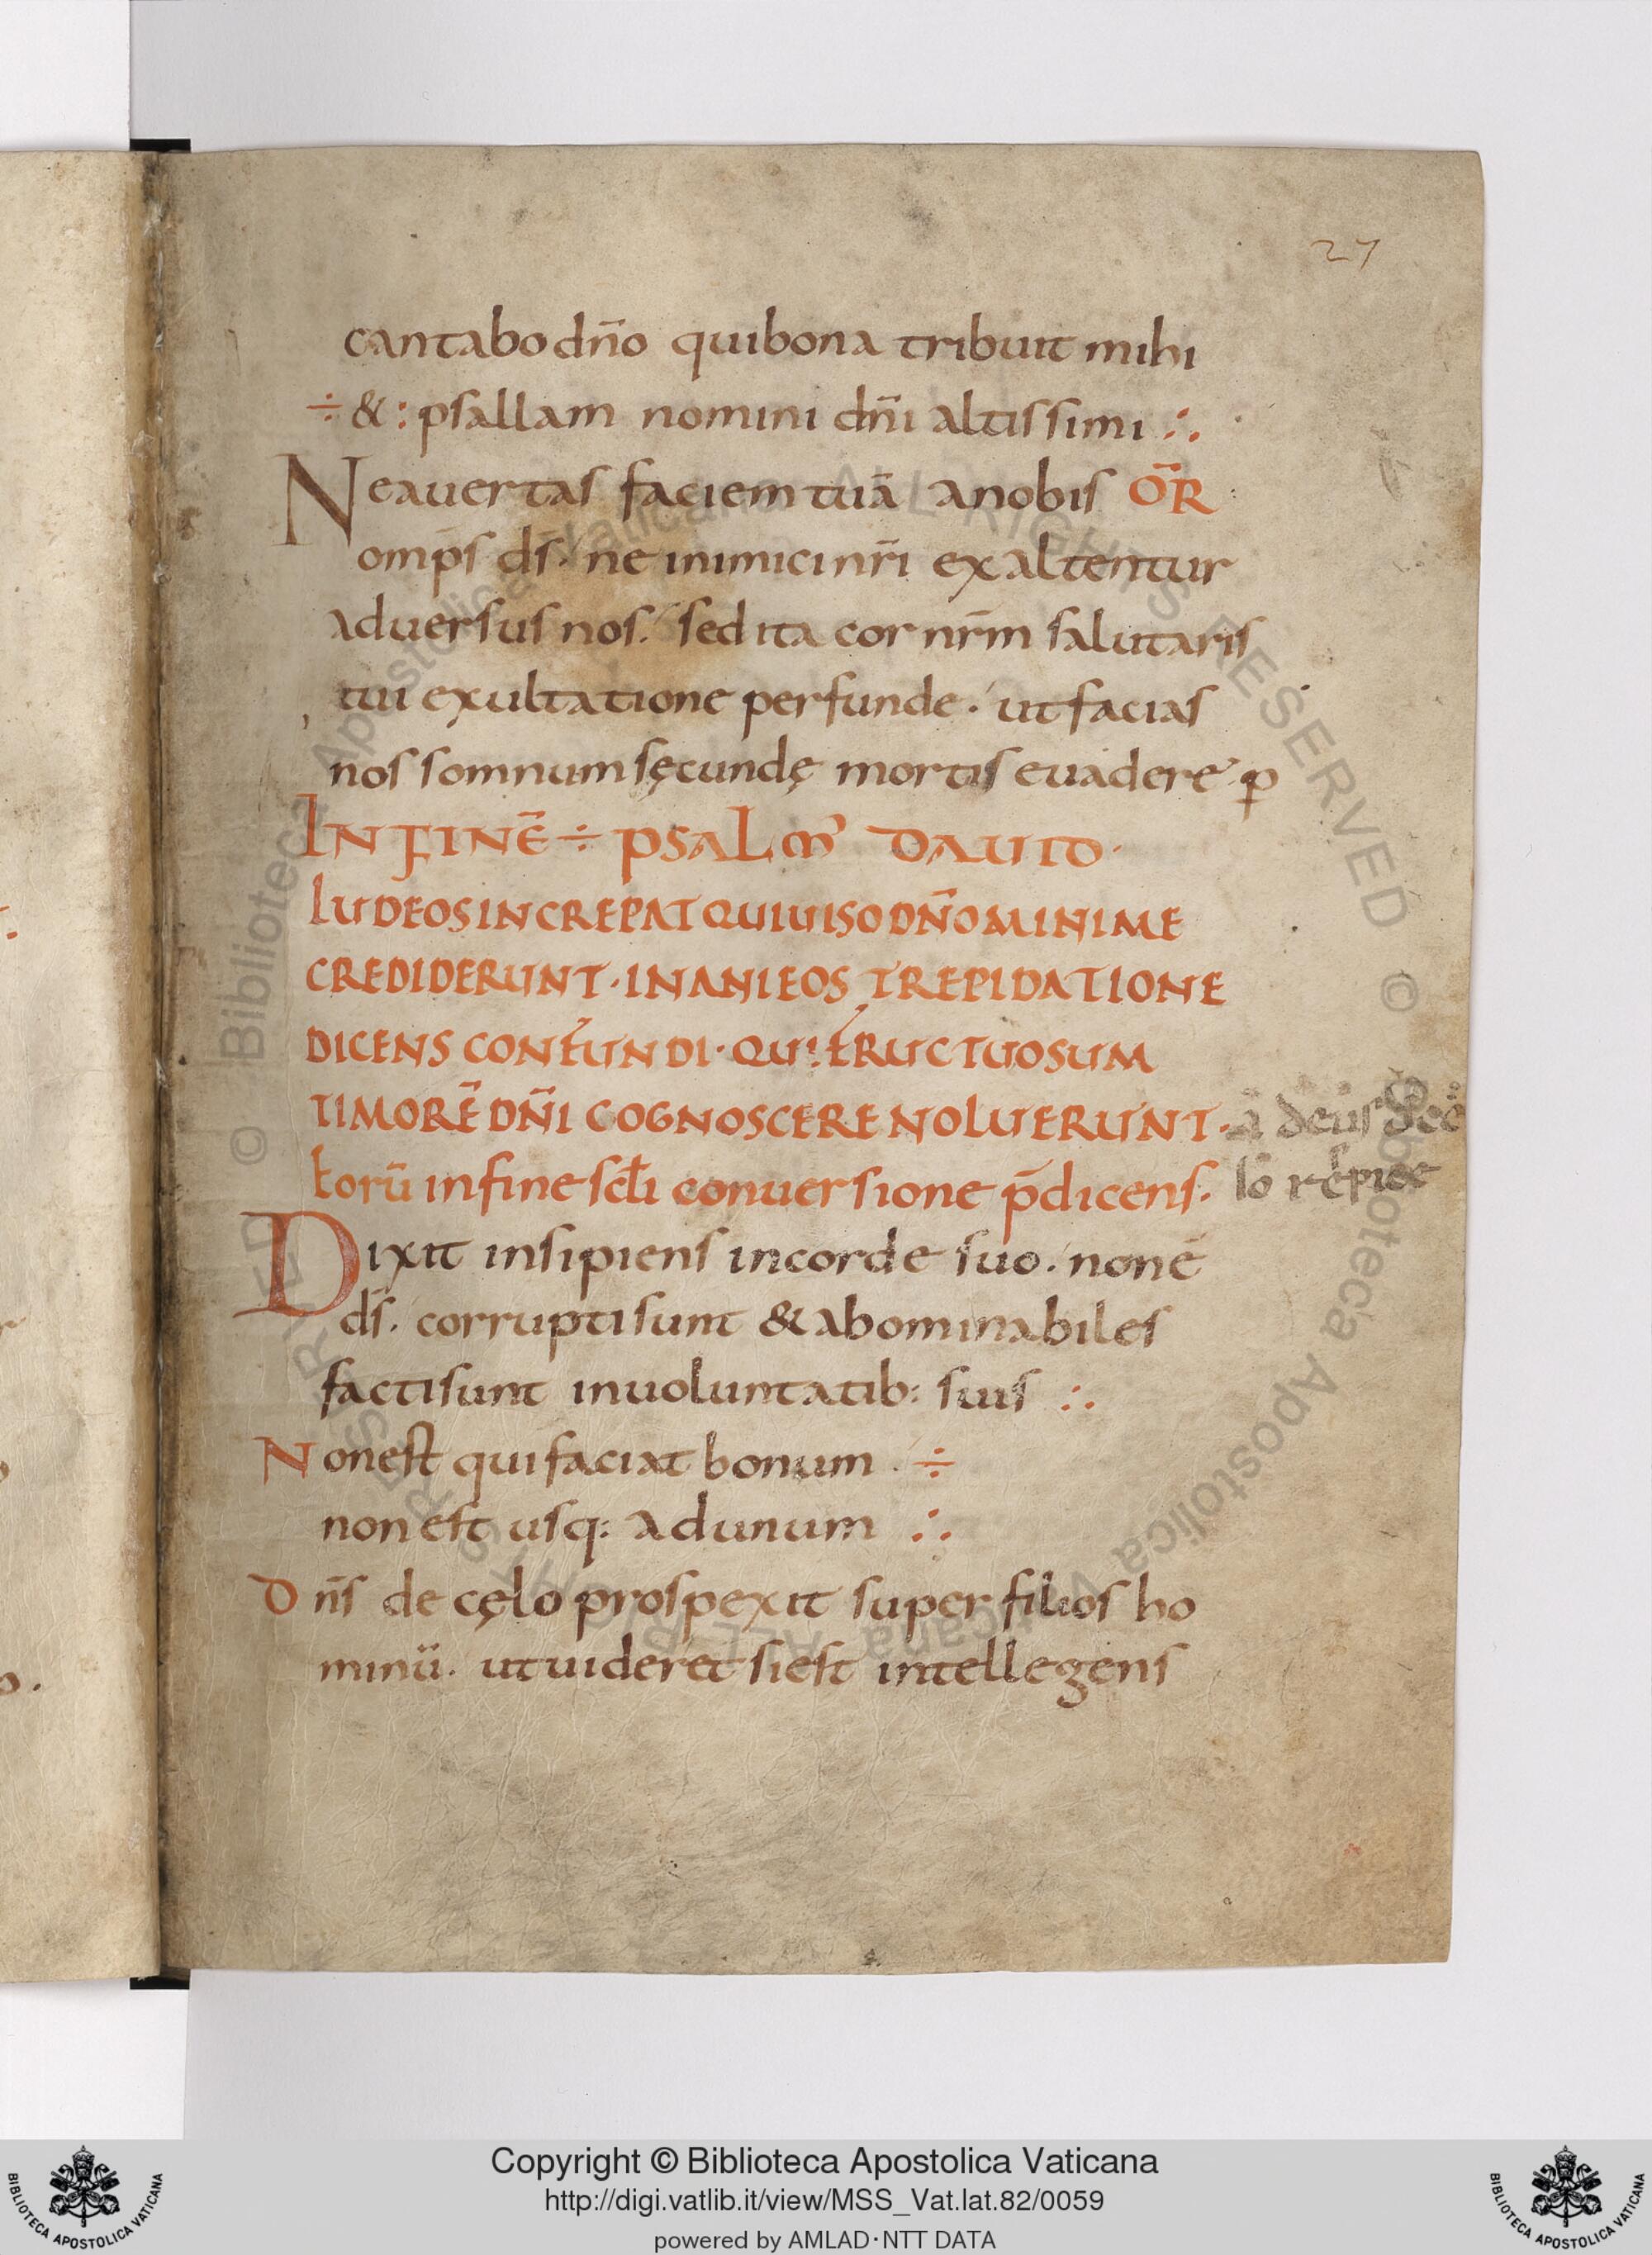 27
cantabo dn̄o quibona tribuit mihi
÷ & : psallam nomini dn̄i altissimi ∴
Neauertas faciem tuā anobis ŌR
omp̄s ds̄. ne inimici nr̄i exaltentur
aduersus nos. sed ita cor nr̄m salutaris
tui exultatione perfunde. ut facias
nos somnum sęcundę mortis euadere. p
IN FINĒ ÷ PSALM' DAUID.
IUDEOS INCREPAT QUI UISO DN̄O MINIME
CREDIDERUNT. INANI EOS TREPIDATIONE
DICENS CONFUNDI. QUI FRUCTUOSUM
TIMORĒ DN̄I COGNOSCERE NOLUERUNT.
ā deus
Eorū infine scl̄i conuersione p̄dicens.
lo
Dixit insipiens incorde suo. non ē
ds̄. corrupti sunt & abominabiles
facti sunt inuoluntatib: suis ∴
Nonest qui faciat bonum. ÷
non est usq: ad unum ∴
Dn̄s de cęlo prospexit super filios ho
minū. ut uideret si est intellegens
Copyright © Biblioteca Apostolica Vaticana
http://digi.vatlib.it/view/MSS_Vat.lat.82/0059
powered by AMLAD·NTT DATA
BIBLIOTECA APOSTOLICA VATICANA
BIBLIOTECA APOSTOLICA VATICANA
© Biblioteca Apostolica Vaticana ALL RIGHTS RESERVED © Biblioteca Apostolica Vaticana ALL RIGHTS RESERVED